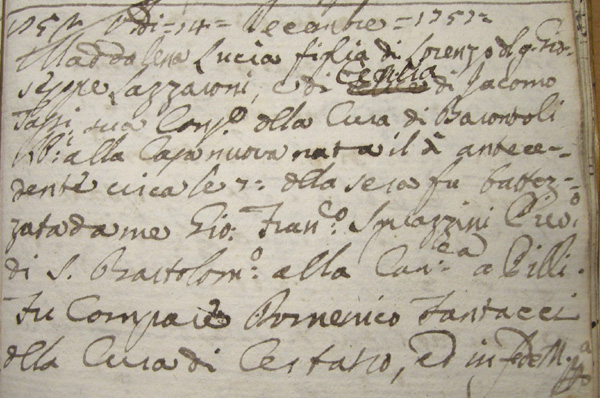 Adi= 14= Decembre = 1757=
Maddalena Lucia figlia di Lorenzo dl q. Giu-
seppe Lazzaroni, e di Cecilia di Jacomo
sua Cons.e della Cura di
alla Casa nuova nata il dì antece-
dente circa le 7= della sera fu battez-
zata da me Gio: Fran.co
di S. Bartolom.o alla Can.ca a
Fu Compare Domenico Fantacci
della Cura di ed in fede M.